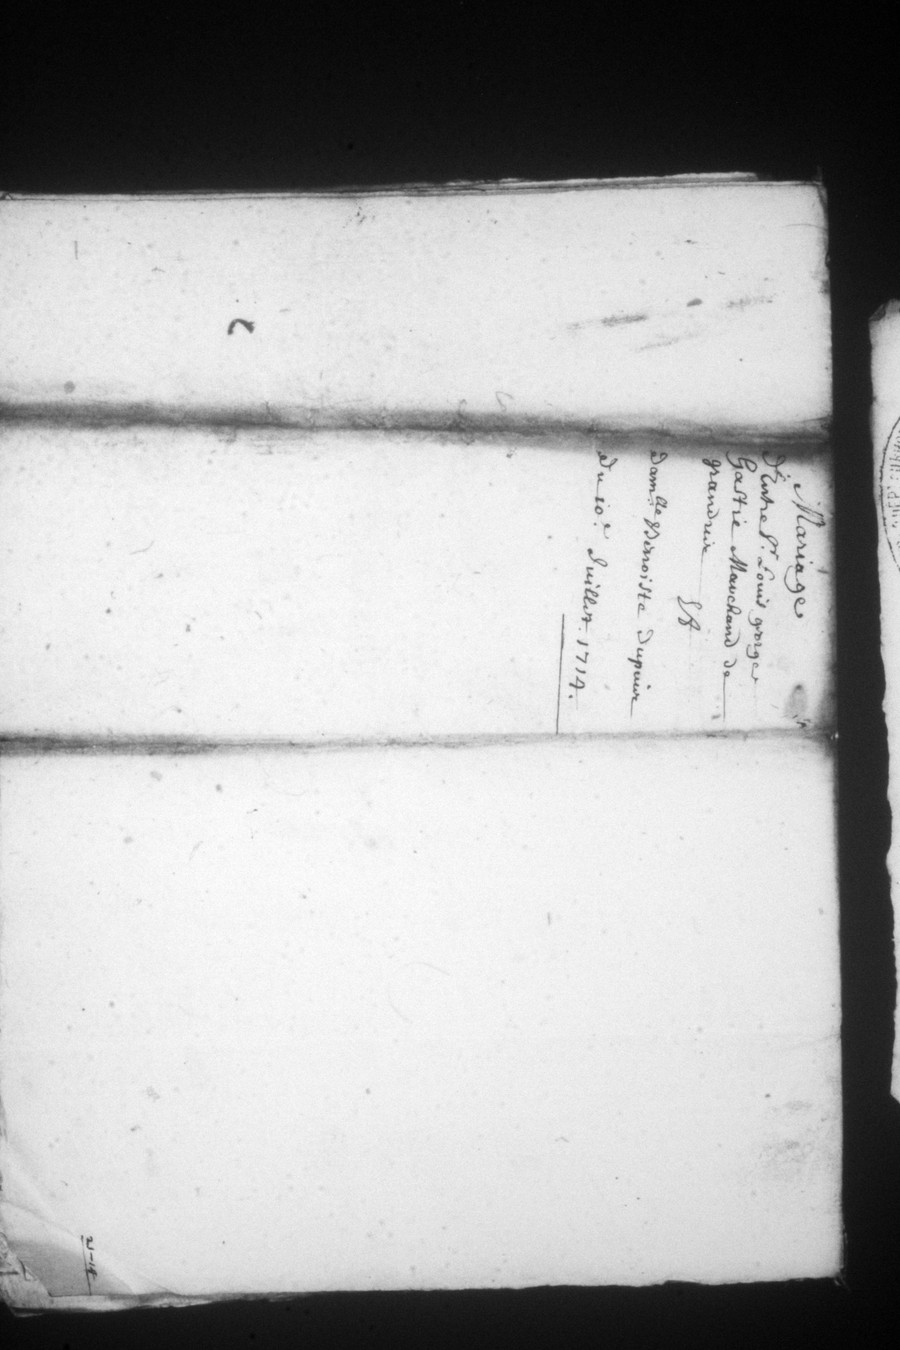 Mariage
D'Entre Sr. Louis georges
Gastié Marchand de
grandrui Et
Damlle Benoiste Dupuis
Du 10e. Juillet 1714.